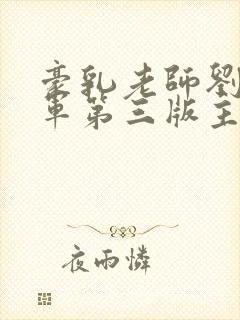 豪乳老師劉
車第三版主
夜雨憐